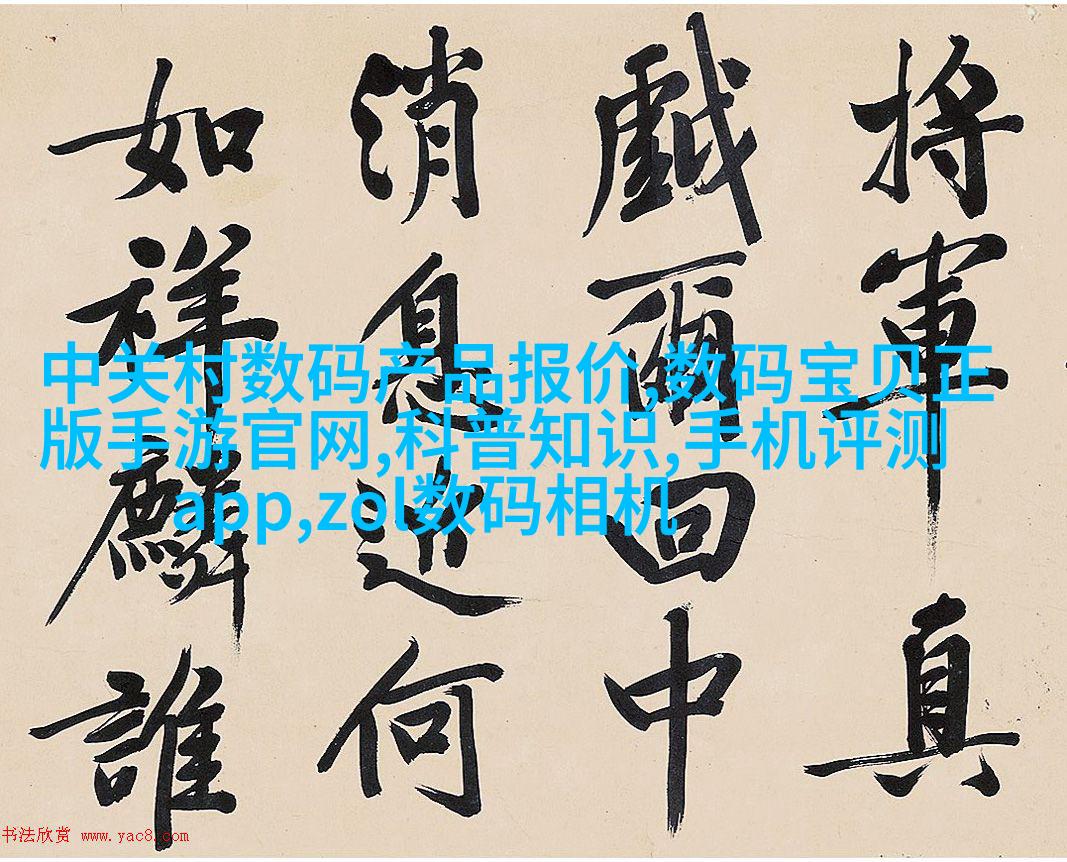 將軍真
戲爾回中
消息近何
如祥麟誰
中关村数码产品报价,数码宝贝正
版手游官网,科普知识,手机评测
app,zol数码相机
书法欣赏 www.yac8.com